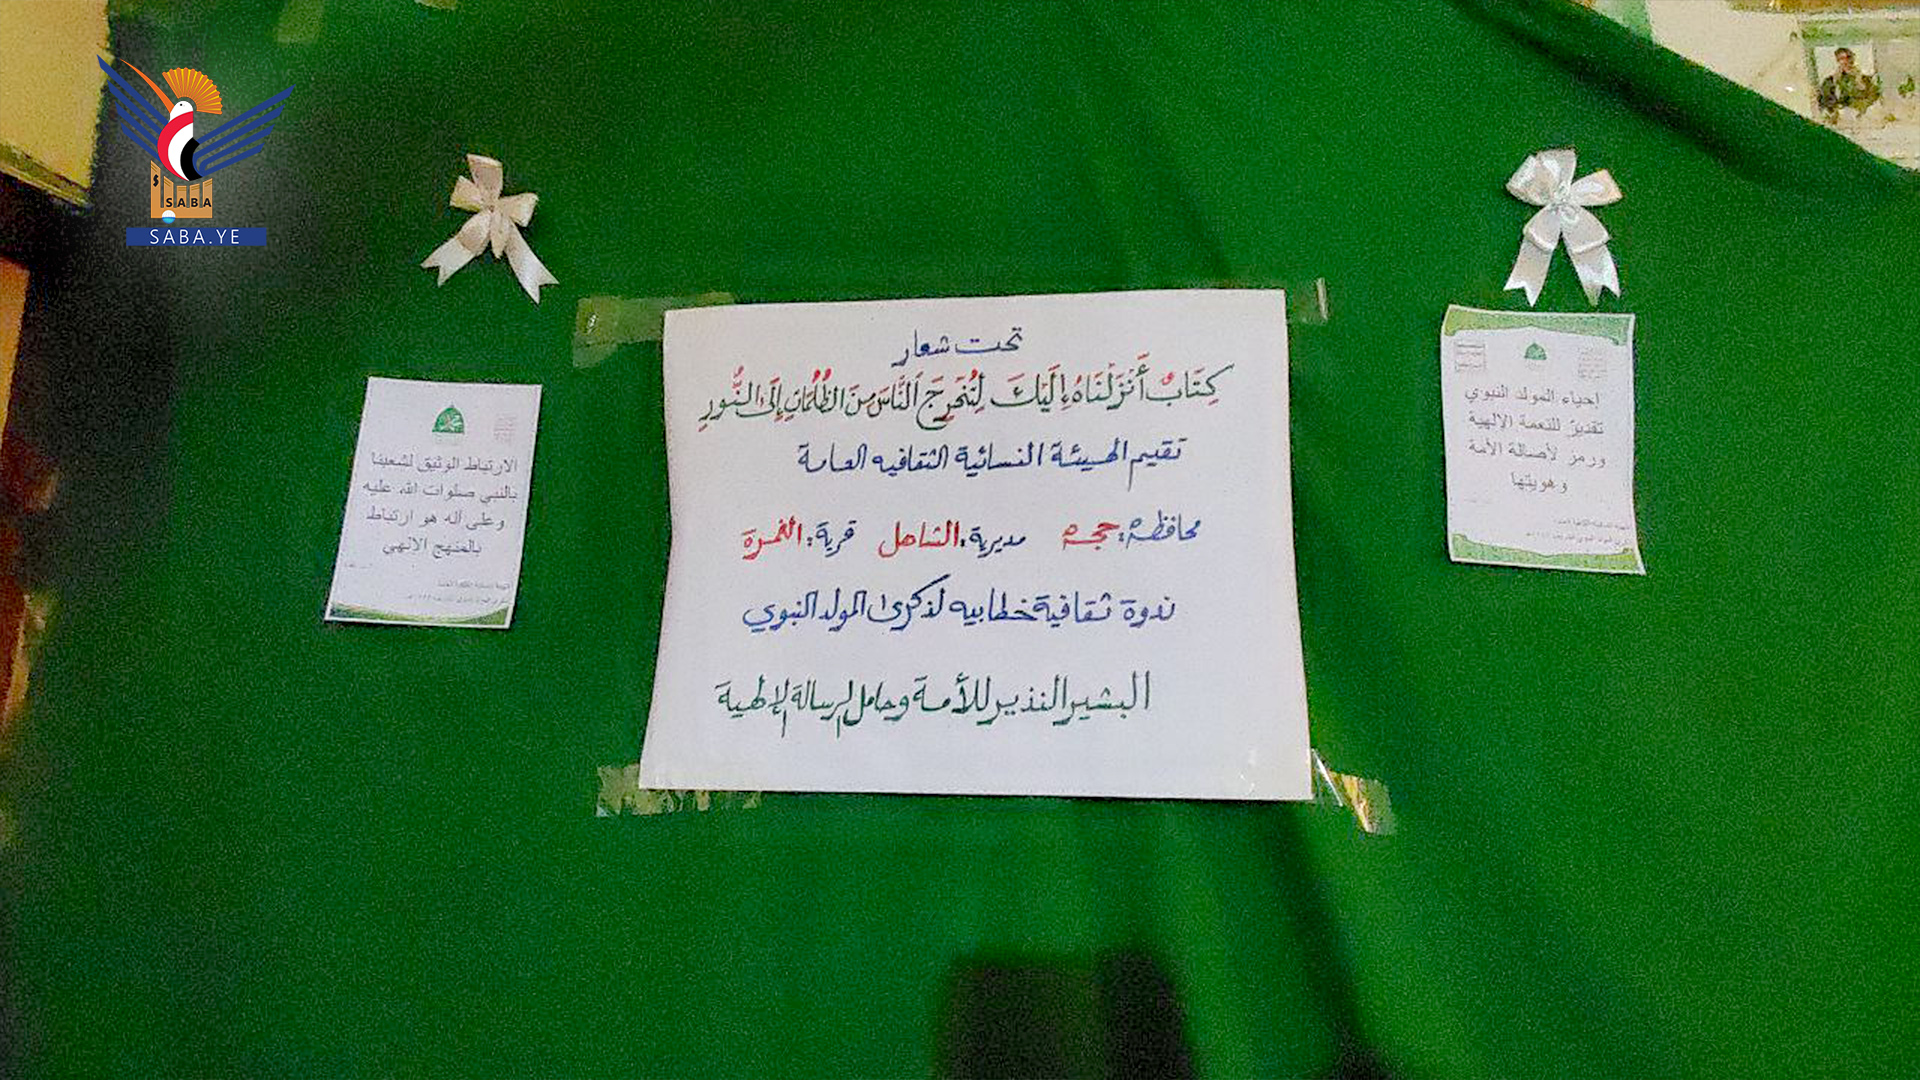 SABA
SABA.YE
تحت شعار
كِتَابٌ أَنْزَلْنَاهُ إِلَيْكَ لِتُخْرِجَ النَّاسَ مِنَ الظُّلُمَاتِ إِلَى النُّورِ
تقيم الهيئة النسائية الثقافيه العامة
محافظة: حجة مديرية: الشاهل قرية: الغمرة
ندوة ثقافية خطابيه لذكرى المولد النبوي
البشير النذير للأمة وحامل الرسالة الإلهية
إحياء المولد النبوي
تقديرٌ للنعمة الإلهية
ورمز لأصالة الأمة
وهويتها
الارتباط الوثيق لشعبنا
بالنبي صلوات الله عليه
وعلى آله هو ارتباط
بالمنهج الالهي